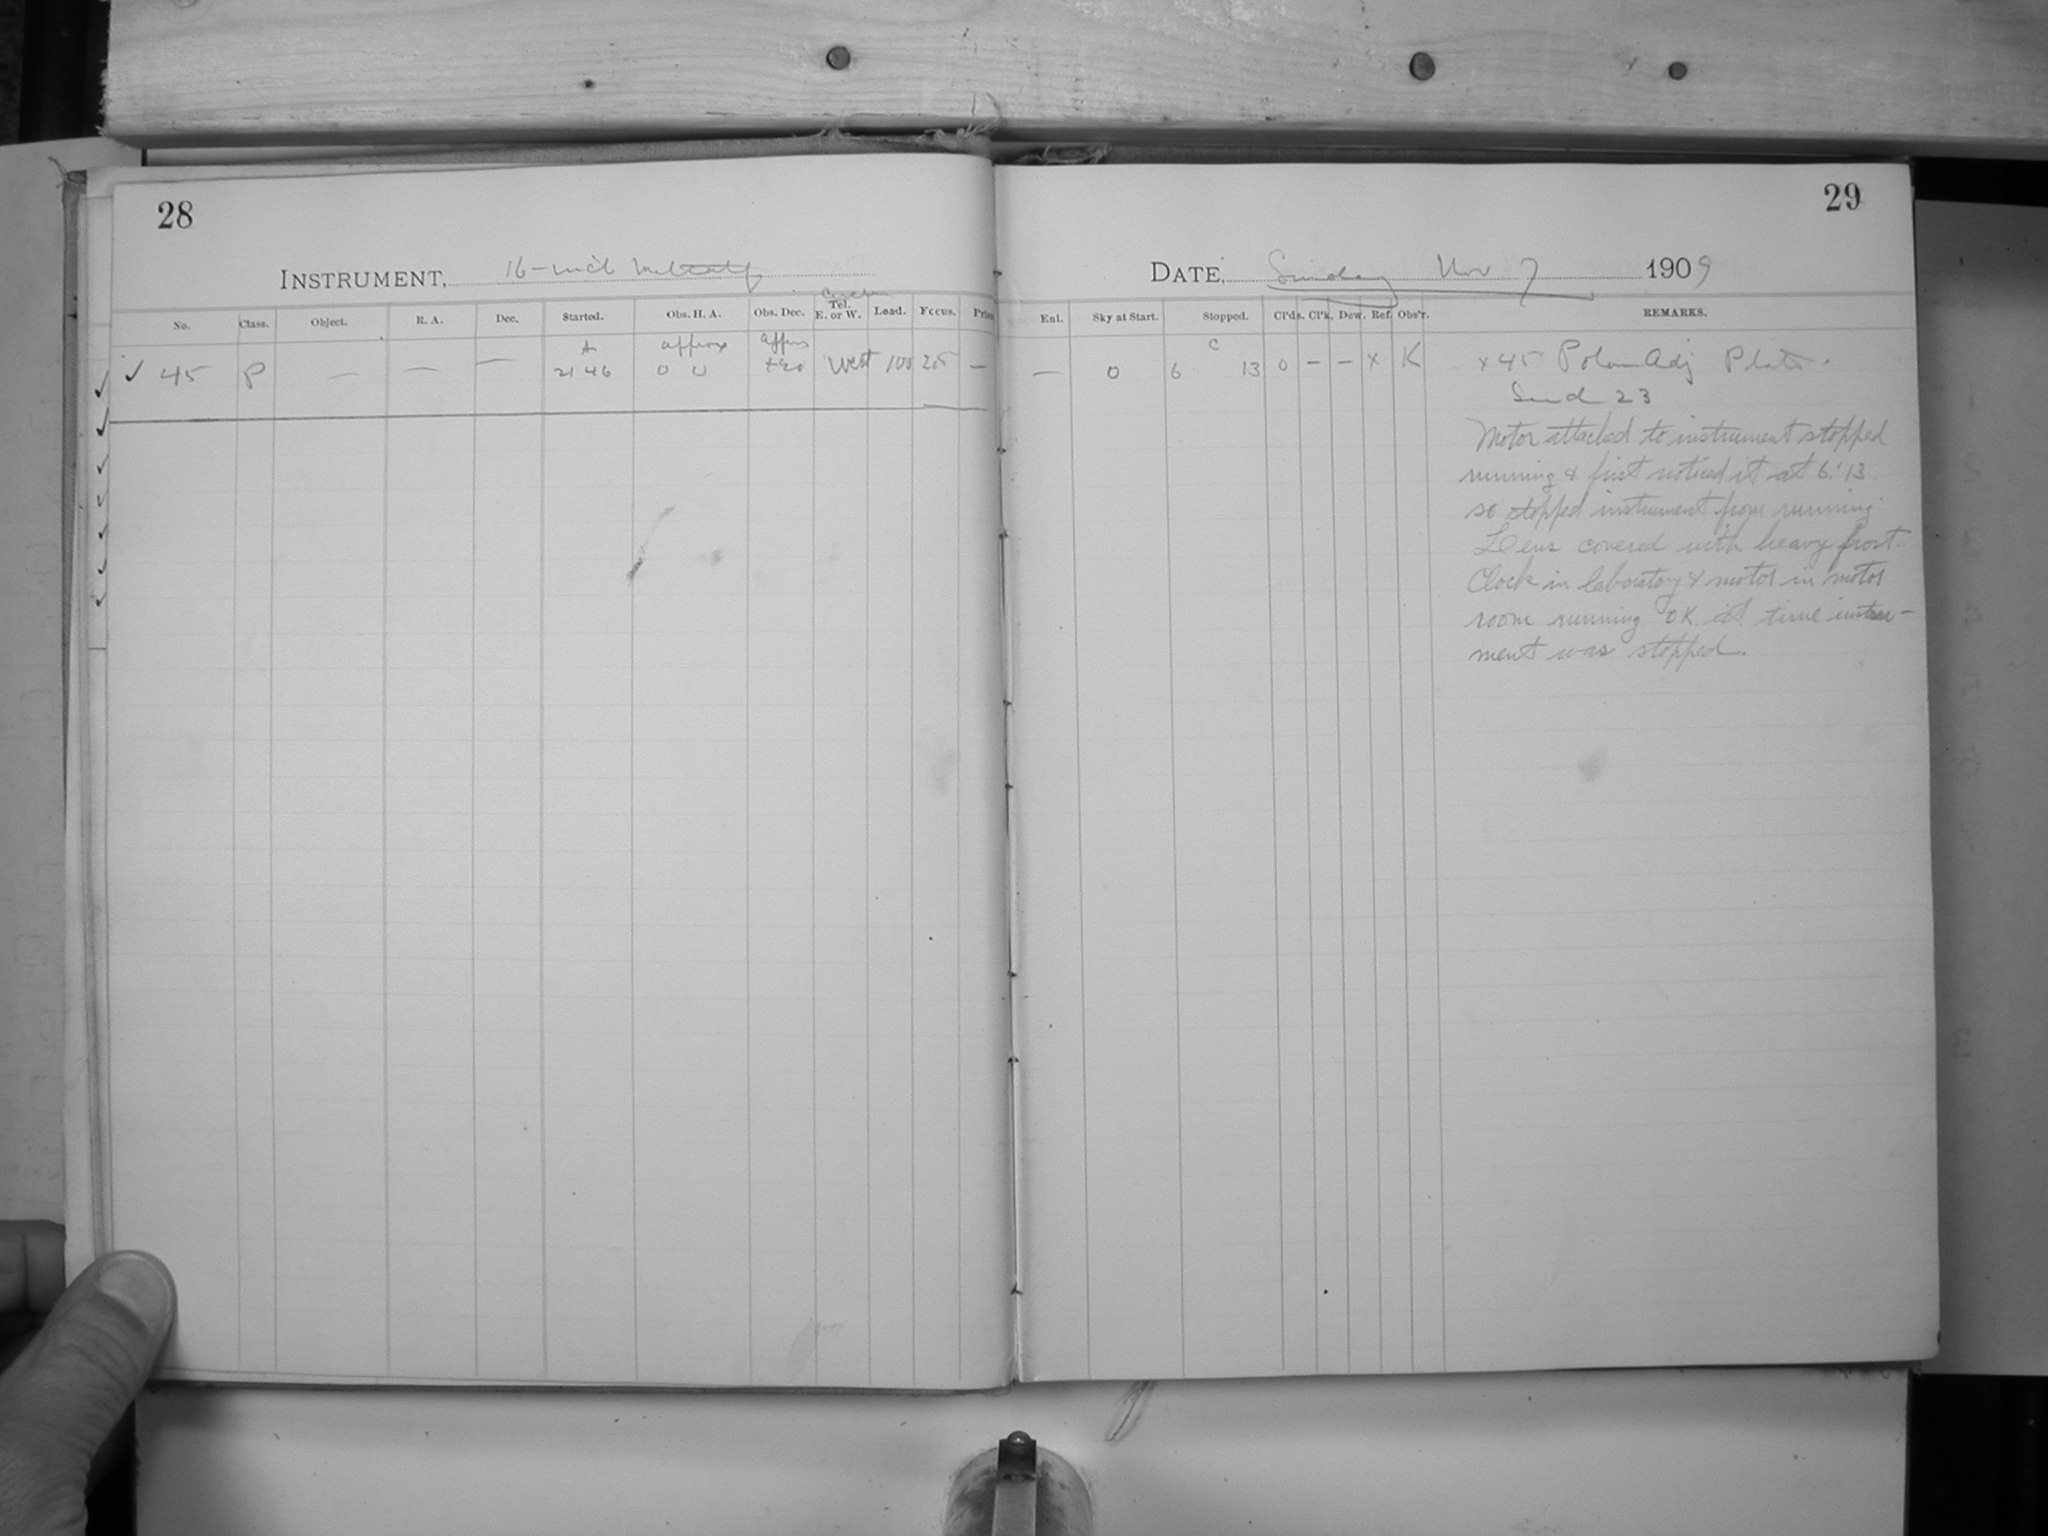 28
INSTRUMENT, 16-inch Metcalf
No. Class. Object. R. A. Dec. Started. Obs. H. A. Obs. Dec. Circle Tel. E. or W. Lead. Focus. Prism
A approx approx
✓ 45 P — — — 21 46 0 0 +90 West 100 25 —
29
DATE, Sunday Nov 7 1909
Enl. Sky at Start. Stopped. Cl'ds. Cl'k. Dew. Ref. Obs'r. REMARKS.
C
— 0 6 13 0 — — x K x 45 Polar Adj Plate.
23
Motor attached to instrument stopped
running & first noticed it at 6:13
so stopped instrument from running
Lens covered with heavy frost.
Clock in laboratory & motor in motor
room running OK at time instru-
ment was stopped.